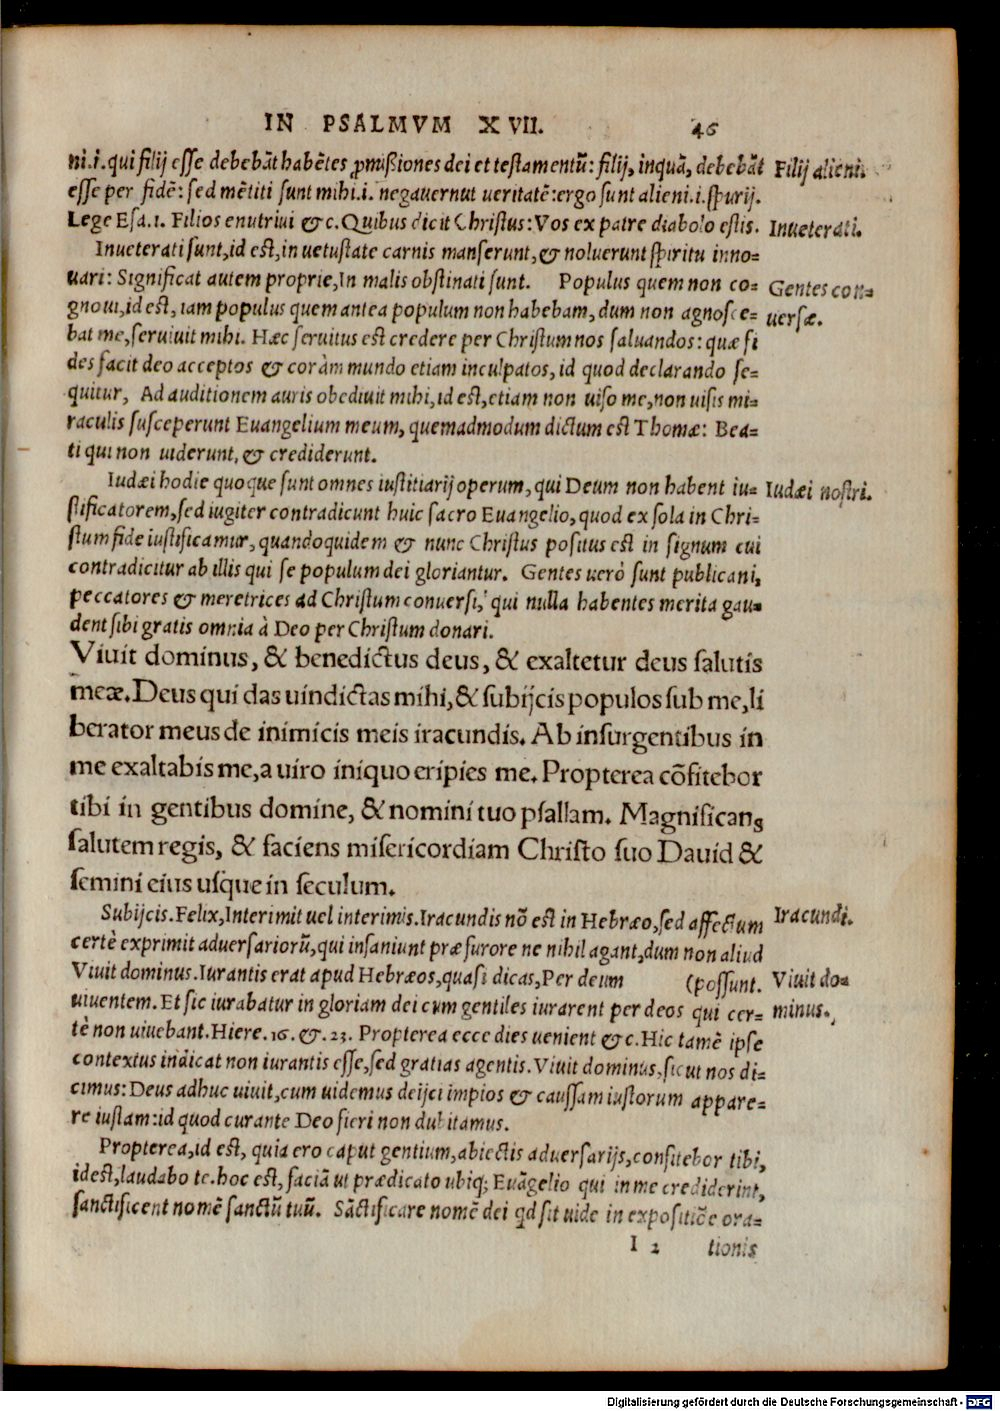 IN PSALMVM XVII. 46
ni.i.qui filij esse debebãt habẽtes ꝓmißiones dei et testamentũ: filij, inquã, debebãt
Filij alieni.
esse per fidẽ: sed mẽtiti sunt mihi.i. negauernut ueritatẽ:ergo sunt alieni.i.spurij.
Lege Esa.1. Filios enutriui &c. Quibus dicit Christus: Vos ex patre diabolo estis.
Inueterati.
Inueterati sunt, id est, in uetustate carnis manserunt, & noluerunt spiritu inno=
uari: Significat autem proprie, In malis obstinati sunt. Populus quem non co=
Gentes con=
gnoui, id est, iam populus quem antea populum non habebam, dum non agnosce=
uersæ.
bat me, seruiuit mihi. Hæc seruitus est credere per Christum nos saluandos: quæ fi
des facit deo acceptos & coràm mundo etiam inculpatos, id quod declarando se=
quitur, Ad auditionem auris obediuit mihi, id est, etiam non uiso me, non uisis mi=
raculis susceperunt Euangelium meum, quemadmodum dictum est Thomæ: Bea=
ti qui non uiderunt, & crediderunt.
Iudæi hodie quoque sunt omnes iustitiarij operum, qui Deum non habent iu=
Iudæi nostri.
stificatorem, sed iugiter contradicunt huic sacro Euangelio, quod ex sola in Chri=
stum fide iustificamur, quandoquidem & nunc Christus positus est in signum cui
contradicitur ab illis qui se populum dei gloriantur. Gentes uerò sunt publicani,
peccatores & meretrices ad Christum conuersi, qui nulla habentes merita gau=
dent sibi gratis omnia à Deo per Christum donari.
Viuit dominus, & benedictus deus, & exaltetur deus salutis
meæ. Deus qui das uindictas mihi, & subijcis populos sub me, li
berator meus de inimicis meis iracundis. Ab insurgentibus in
me exaltabis me, a uiro iniquo eripies me. Propterea cõfitebor
tibi in gentibus domine, & nomini tuo psallam. Magnifican&#115;
salutem regis, & faciens misericordiam Christo suo Dauid &
semini eius usque in seculum.
Subijcis. Felix, Interimit uel interimis. Iracundis nõ est in Hebræo, sed affectum
Iracundi.
certè exprimit aduersariorũ, qui insaniunt præ furore ne nihil agant, dum non aliud
Viuit dominus. Iurantis erat apud Hebræos, quasi dicas, Per deum (possunt.
Viuit do=
uiuentem. Et sic iurabatur in gloriam dei cum gentiles iurarent per deos qui cer=
minus.
tè non uiuebant. Hiere.16. &. 23. Propterea ecce dies uenient &c. Hic tamẽ ipse
contextus indicat non iurantis esse, sed gratias agentis. Viuit dominus, sicut nos di=
cimus: Deus adhuc uiuit, cum uidemus deijci impios & caussam iustorum appare=
re iustam: id quod curante Deo fieri non dubitamus.
Propterea, id est, quia ero caput gentium, abiectis aduersarijs, confitebor tibi,
idest, laudabo te. hoc est, faciã ut prædicato ubiq; Euãgelio qui in me crediderint,
sanctificent nomẽ sanctũ tuũ. Sãctificare nomẽ dei qd sit uide in expositiõe ora=
I 2 tionis
Digitalisierung gefördert durch die Deutsche Forschungsgemeinschaft - DFG